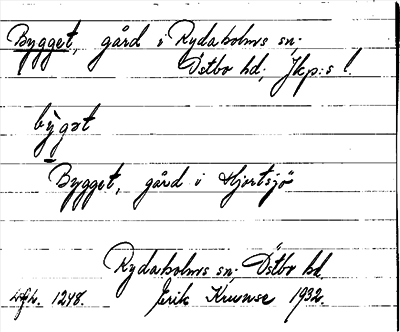 Bygget, gård i Rydaholms sn;
Östbo hd; Jkp:s l.
bỳgət
Bygget, gård i Hjortsjö
Rydaholms sn; Östbo hd.
1248. Erik 1932.